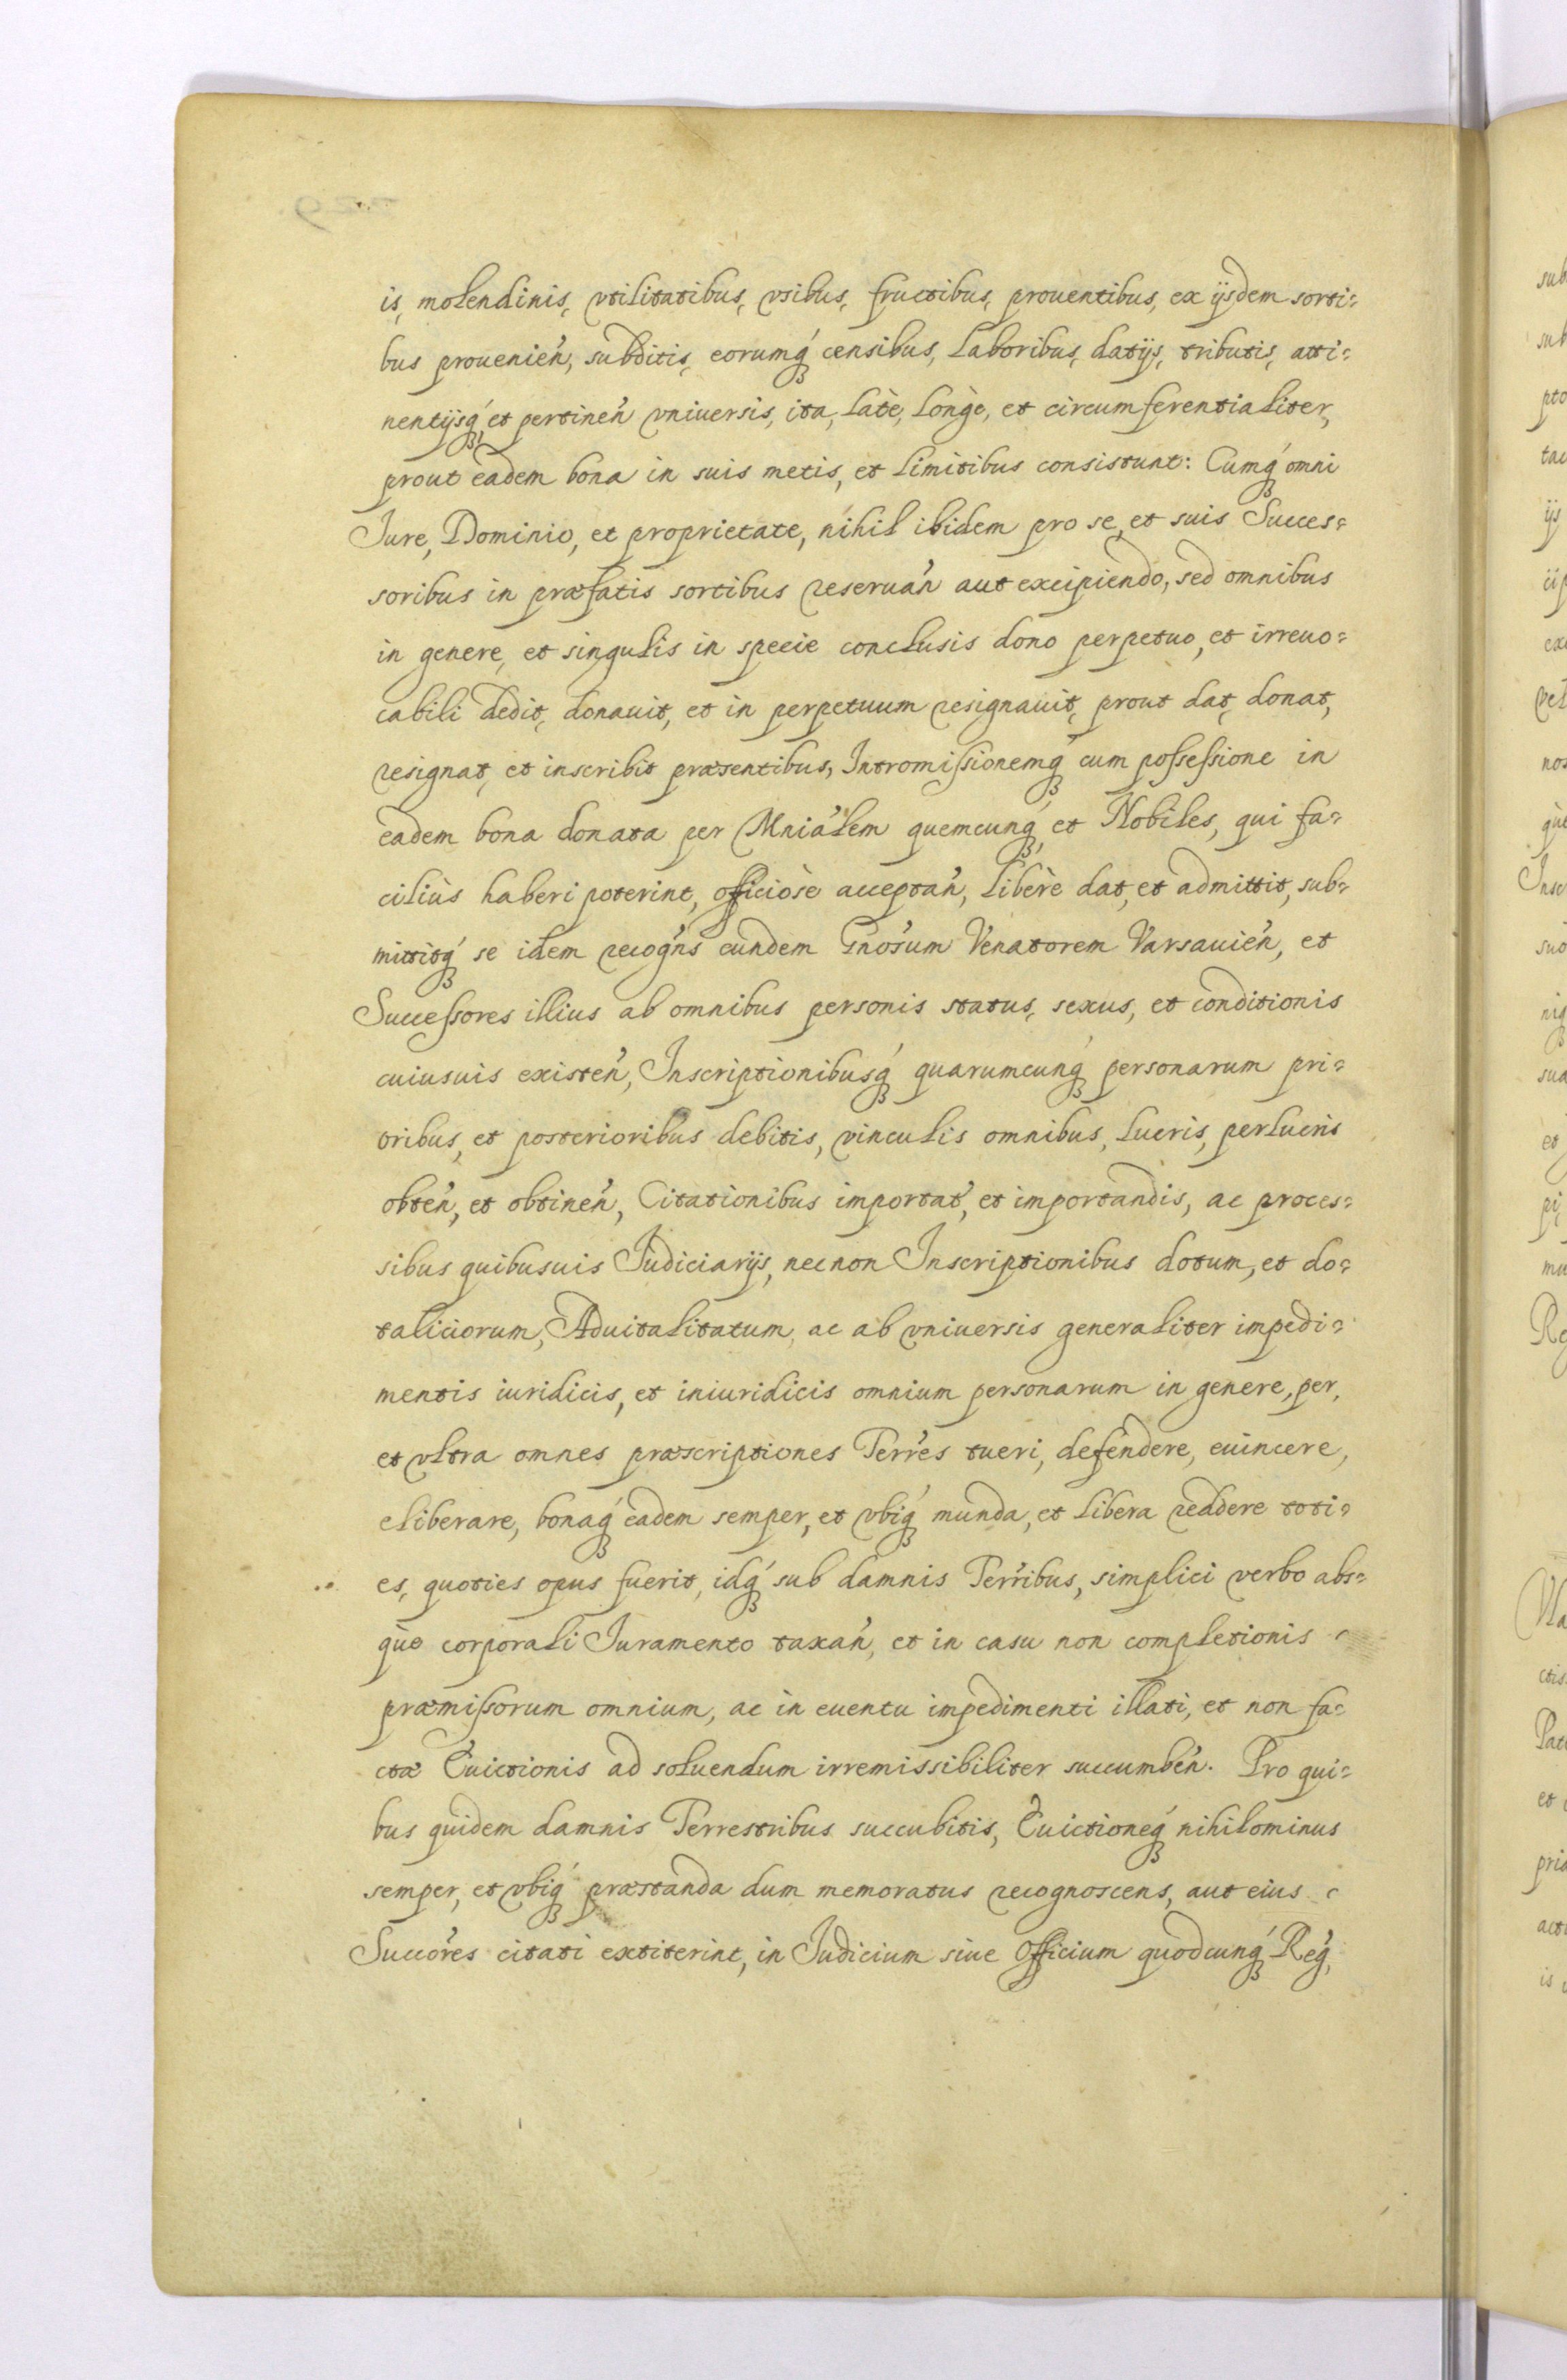 is, molendinis, vtilitatibus, vsibus, fructibus, prouentibus, ex ijsdem sorti=
bus prouenień, subditis, eorumq́ꝫ censibus, laboribus, datijs, tributis, atti=
nentijsq́ꝫ, et pertineń vniuersis, ita, latè, longè, et circumferentialiter,
prout eadem bona in suis metis, et limitibus consistunt: Cumq́ꝫ omni
Jure, Dominio, et proprietate, nihil ibidem pro se, et suis Succes=
soribus in præfatis sortibus reseruań aut excipiendo, sed omnibus
in genere, et singulis in specie conclusis dono perpetuo, et irreuo=
cabili dedit, donauit, et in perpetuum resignauit, prout dat, donat,
resignat, et inscribit præsentibus, Intromißionemq́ꝫ cum poßeßione in
eadem bona donata per Mniálem quemcunq́ꝫ, et Nobiles, qui fa=
ciliùs haberi poterint, officiosè acceptań, liberè dat, et admittit, sub=
mittitq́ꝫ se idem recogńs eundem Gnósum Venatorem Varsauień, et
Succeßores illius ab omnibus personis status, sexus, et conditionis
cuiusuis existeń, Inscriptionibusq́ꝫ quarumcunq́ꝫ personarum pri=
oribus, et posterioribus debitis, vinculis omnibus, lucris, perlucris
obteń, et obtineń, Citationibus importat́, et importandis, ac proces=
sibus quibusuis Judiciarijs, necnon Inscriptionibus dotum, et do=
taliciorum, Aduitalitatum, ac ab vniuersis generaliter impedi=
mentis iuridicis, et iniuridicis omnium personarum in genere, per,
et vltra omnes præscriptiones Terŕes tueri, defendere, euincere,
eliberare, bonaq́ꝫ eadem semper, et vbiq́ꝫ munda, et libera reddere toti=
es, quoties opus fuerit, idq́ꝫ sub damnis Terŕibus, simplici verbo abs=
què corporali Juramento taxań, et in casu non completionis
præmißorum omnium, ac in euentu impedimenti illati, et non fa=
ctæ Euictionis ad soluendum irremissibiliter succumbeń. Pro qui=
bus quidem damnis Terrestribus succubitis, Euictioneq́ꝫ nihilominus
semper, et vbiq́ꝫ præstanda dum memoratus recognoscens, aut eius
Succóres citati extiterint, in Judicium siue Officium quodcunq́ꝫ Reǵ,